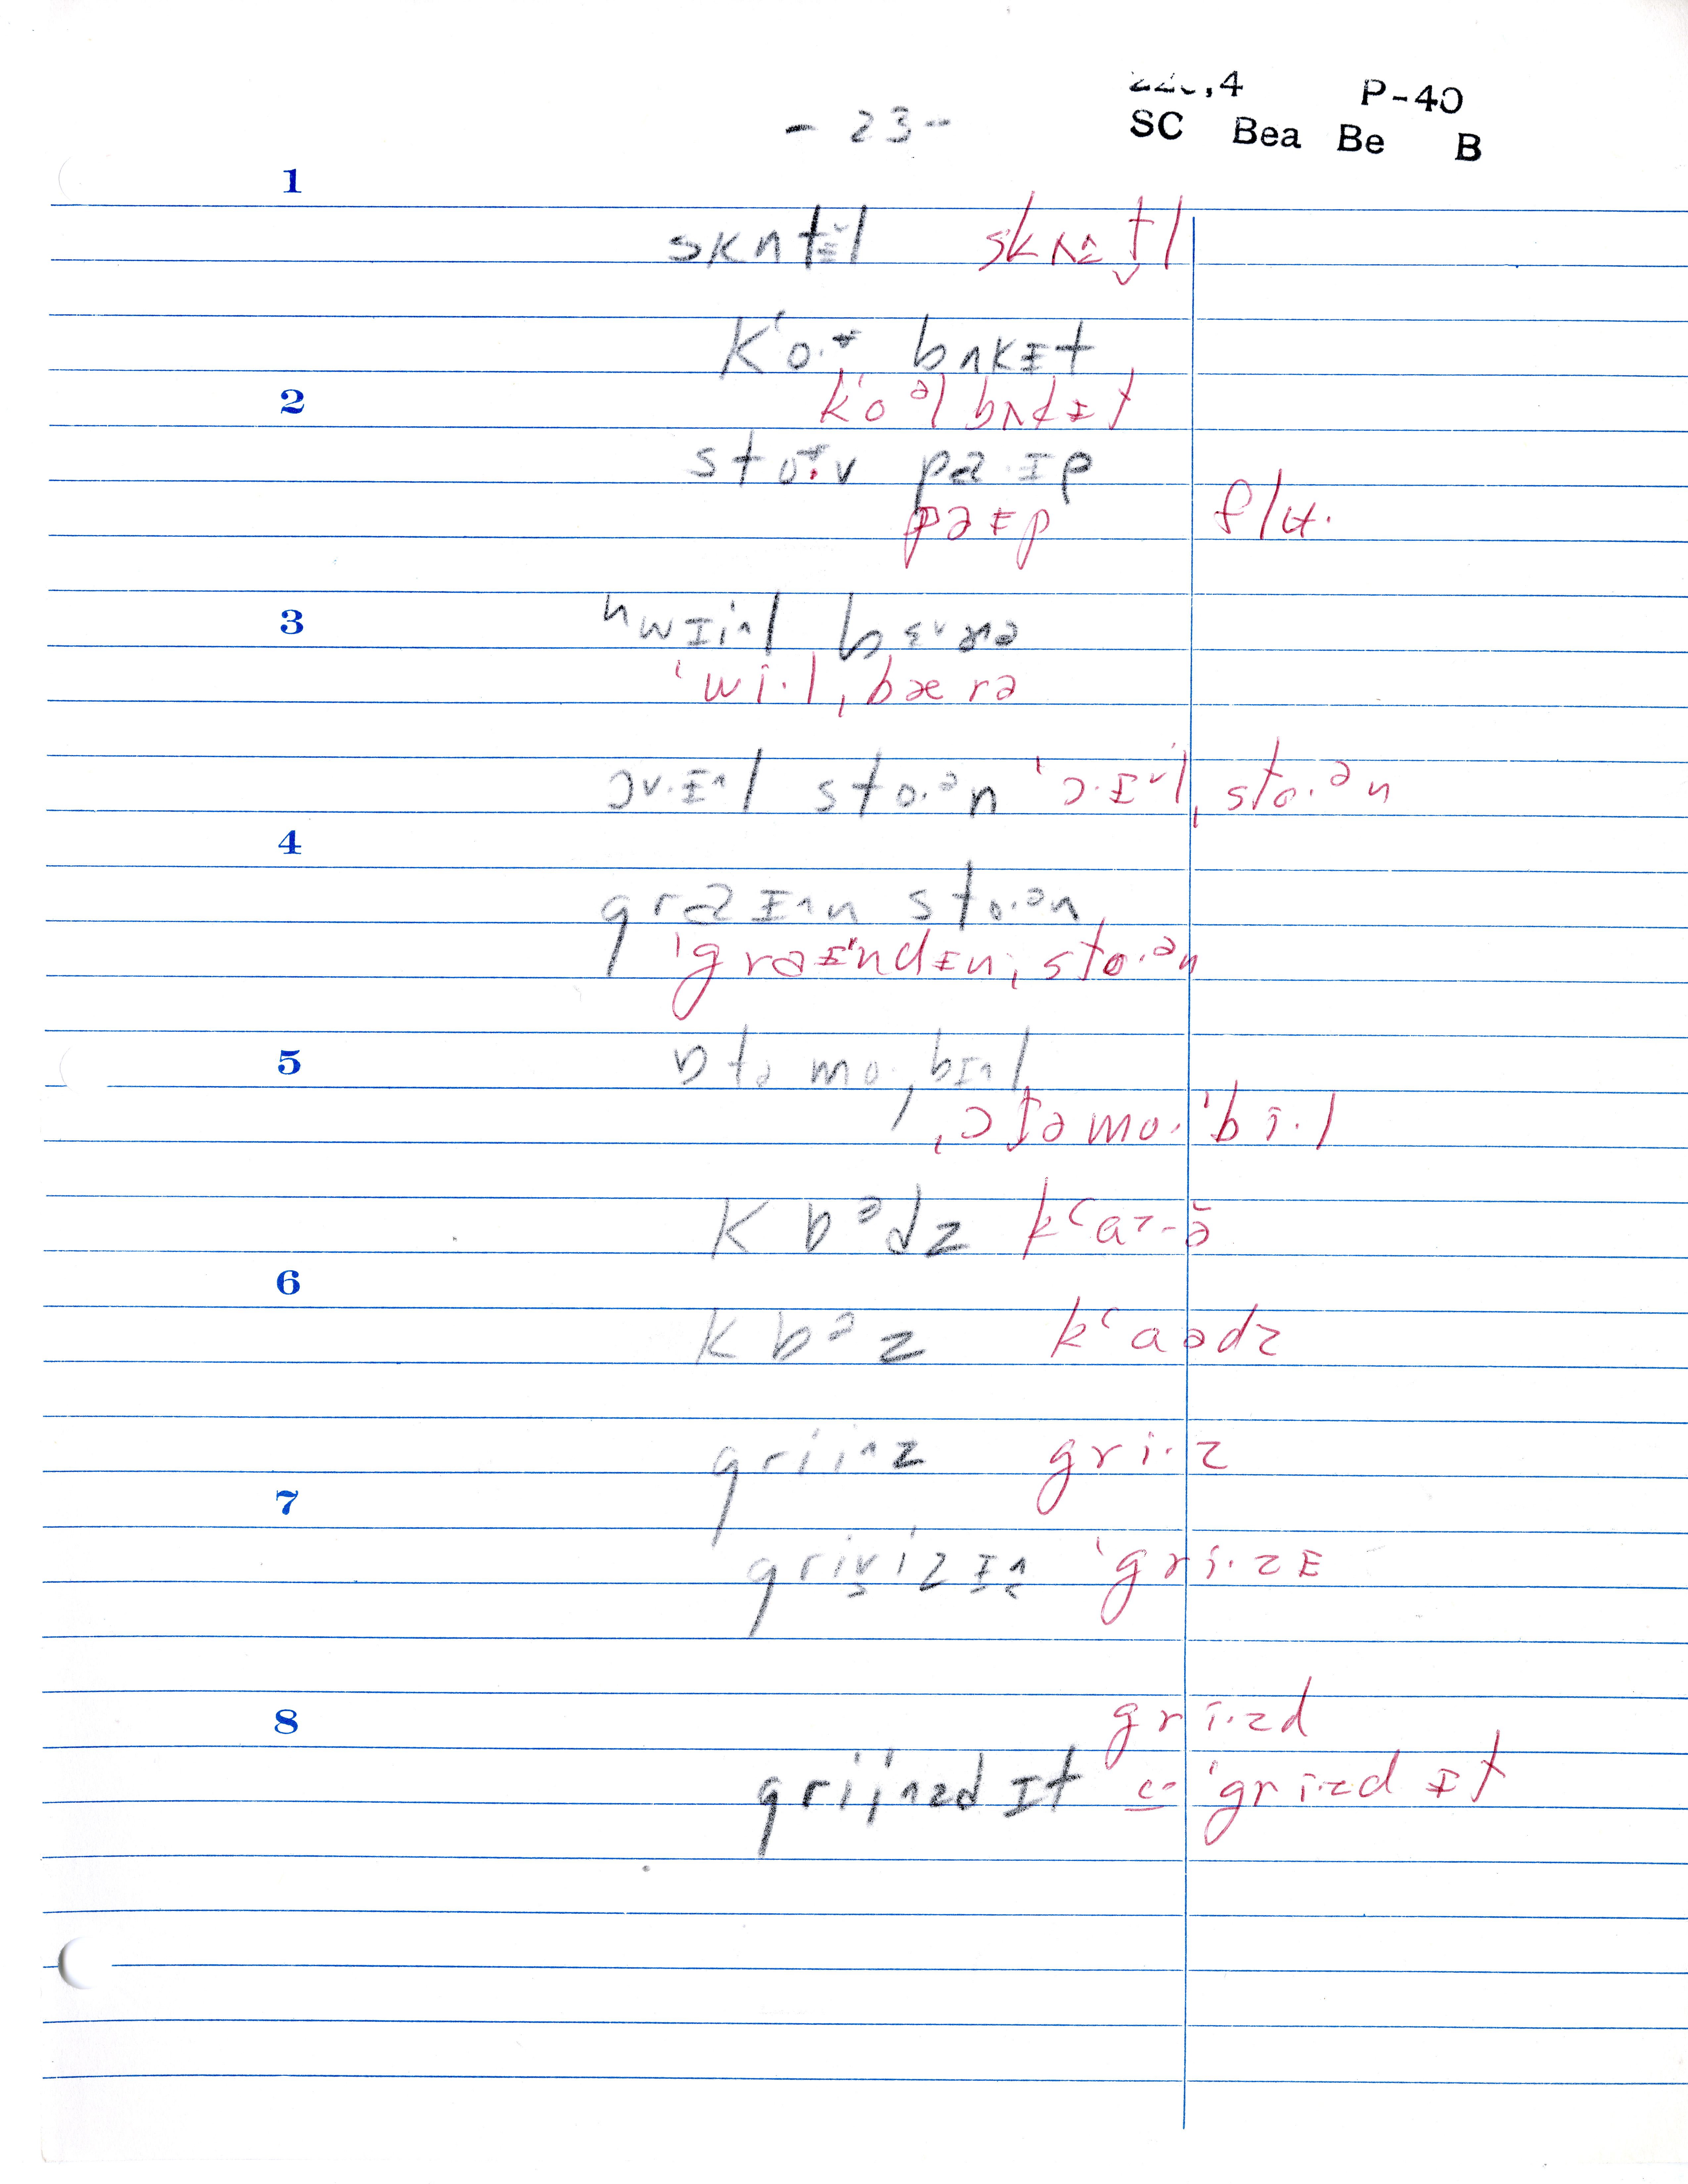 - 23 -
,4 P-40
SC Bea Be B
1
skʌtɛ̌l skʌɛtl
k'o.ɫ bʌkɪt
2
k'oᵊl bʌkɪt
sto.v paɪp
paɪp flu.
3
hwɪi^l bɛ
ˈwi.lˌbærə
ɔv.ɪ^l sto.ᵊn ˈɔ.ɪˇlˌsto.ᵊn
4
graɪ^n sto.ᵊn
ˈgraɪndɪnˌsto.ᵊn
5
ɒtəmo.ˌbɪ^l
ˌɔtəmo.ˈbi.l
kɒᵊdz
6
kɒᵊz kʻaədz
grii^z gri.z
7
ˈgri.zɪ
8
gri.zd
grii^zd ɪt ˈgri.zd ɪt